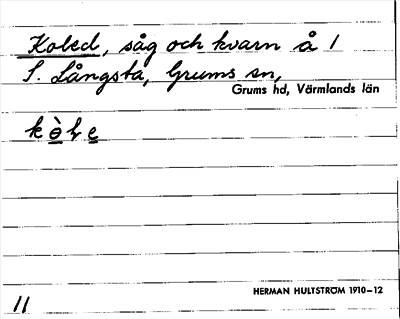 Koled, såg och kvarn å 1
S. Långsta, Grums sn,
Grums hd, Värmlands län
HERMAN HULTSTRÖM 1910–12
11